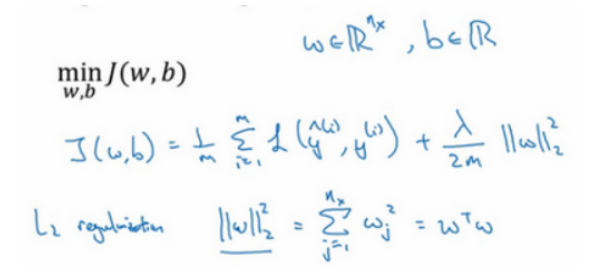 w ∈ ℝ^{n_x}, b ∈ ℝ
min_{w,b} J(w, b)
J(w,b) = 1/m Σ_{i=1}^{m} L(ŷ^{(i)}, y^{(i)}) + λ/2m ||w||_2^2
L_2 regularization ||w||_2^2 = Σ_{j=1}^{n_x} w_j^2 = w^T w